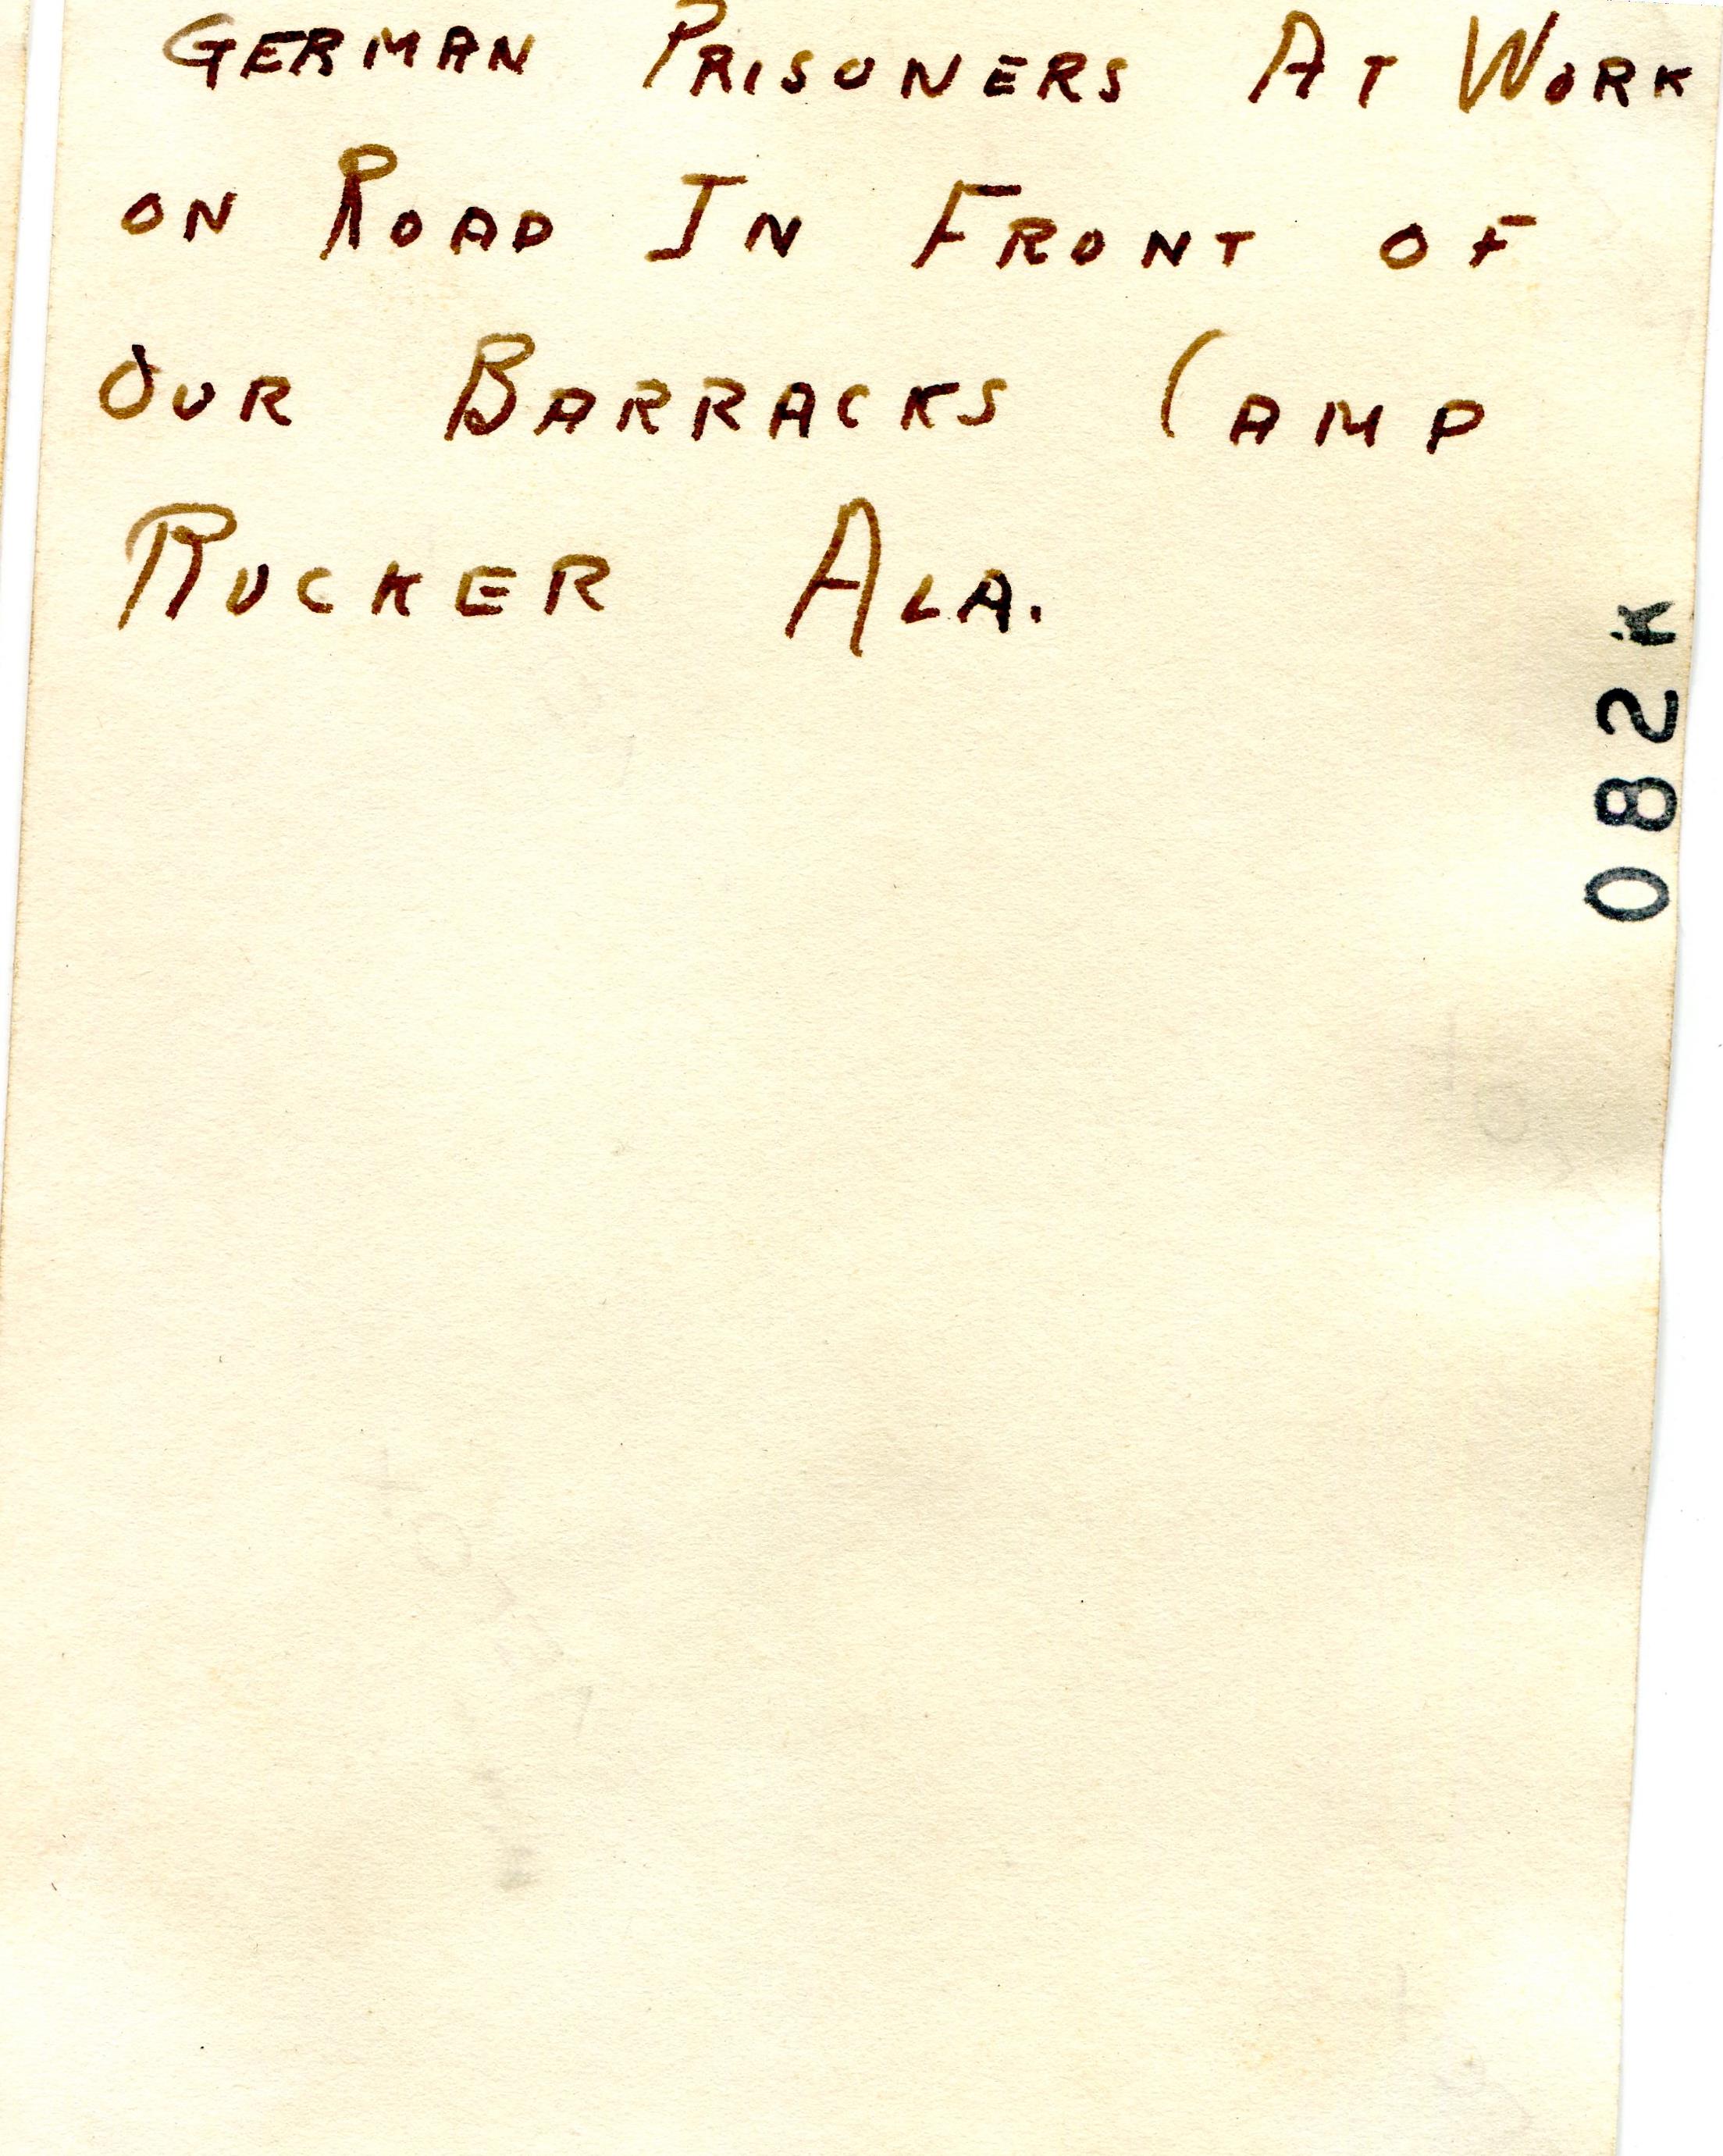 GERMAN PRISONERS AT WORK
ON ROAD IN FRONT OF
OUR BARRACKS CAMP
RUCKER ALA.
082K